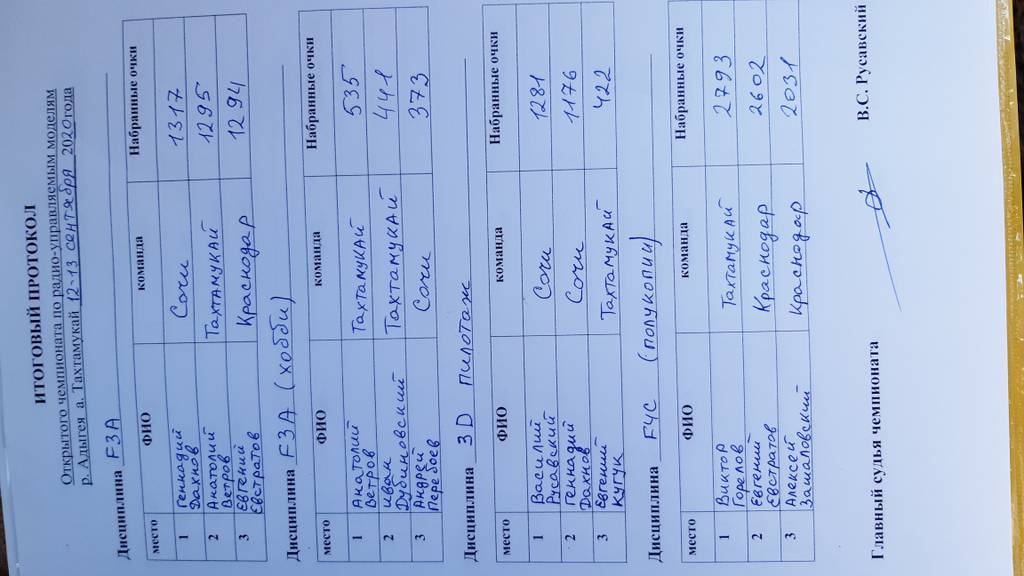 ИТОГОВЫЙ ПРОТОКОЛ
Открытого чемпионата по радио-управляемым моделям
р. Адыгея а. Тахтамукай 12-13 сентября 2020года
Дисциплина F3A
место ФИО команда Набранные очки
1 Геннадий Дахнов Сочи 1317
2 Анатолий Ветров Тахтамукай 1295
3 Евгений Евстратов Краснодар 1294
Дисциплина F3A (хобби)
место ФИО команда Набранные очки
1 Анатолий Ветров Тахтамукай 535
2 Иван Дубиновский Тахтамукай 441
3 Андрей Перебоев Сочи 373
Дисциплина 3D пилотаж
место ФИО команда Набранные очки
1 Василий Русавский Сочи 1281
2 Геннадий Дахнов Сочи 1176
3 Евгений Кугук Тахтамукай 422
Дисциплина F4C (полукопии)
место ФИО команда Набранные очки
1 Виктор Горелов Тахтамукай 2793
2 Евгений Евстратов Краснодар 2602
3 Алексей Замаловский Краснодар 2031
Главный судья чемпионата В.С. Русавский